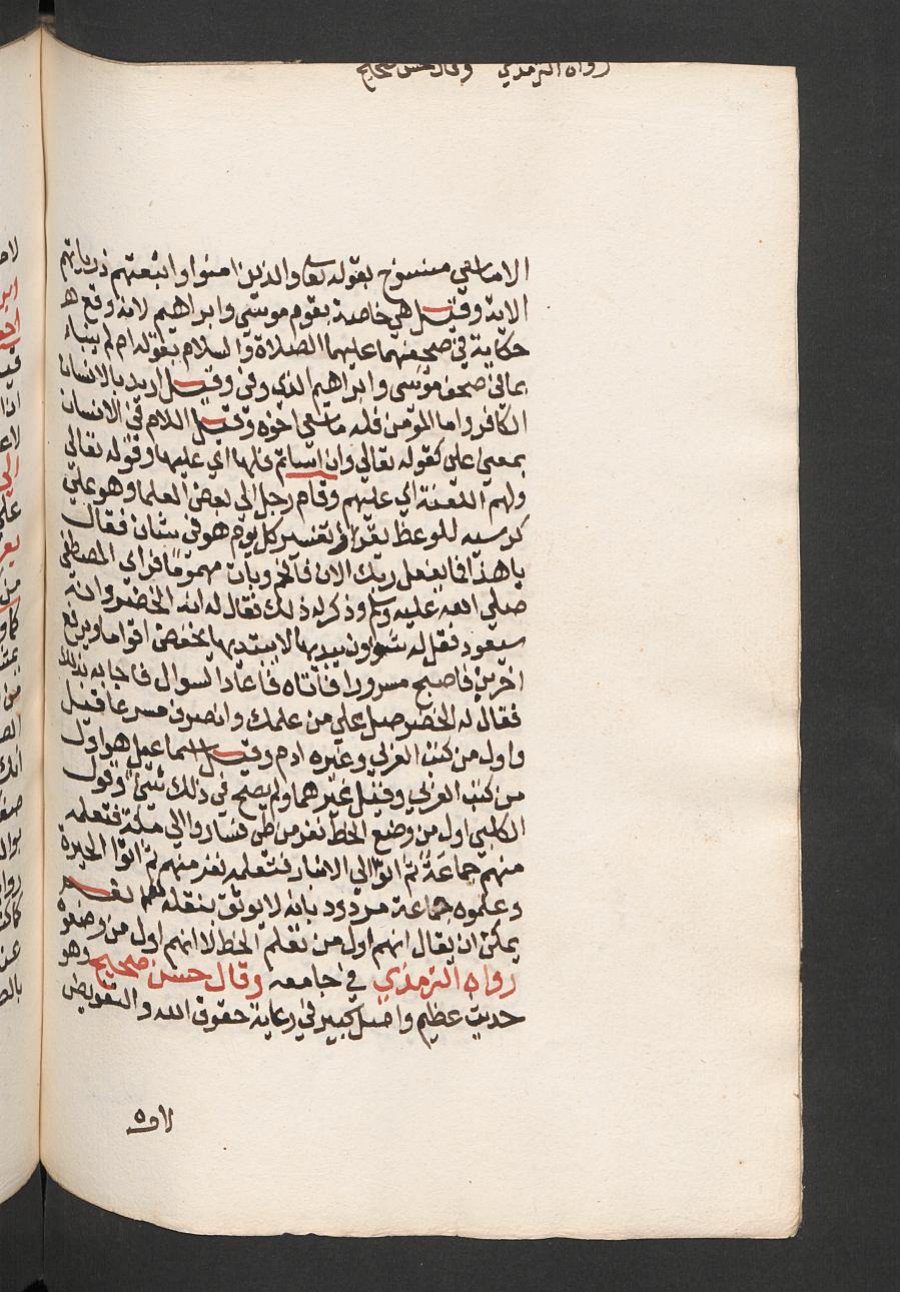 رواه الترمذي وقال حسن صحيح
الا ما سعي منسوخ بقوله تعا والذين امنوا واتبعتهم ذرياتهم
الاية وقيل هي خاصة بقوم موسي وابراهيم لانه وقع
حكاية في صحفهما عليهما الصلاة والسلام بقوله ام لم ينبا
بما في صحف موسي وابراهيم الذي وفي وقيل اريد بالانسان
الكافر واما المومن فله ما سعي اخوه وقيل اللام في الانسان
بمعني علي كقوله تعالي وان اساتم فلها اي عليها وقوله تعالي
ولهم اللعنة اي عليهم وقام رجل الي بعض العلما وهو علي
كرسيه للوعظ يقرا في تفسير كل يوم هو في شان فقال
يا هذا فما يفعل ربك الان فافحم وبات مهموما فراي المصطفي
صلي الله عليه وسلم وذكر له ذلك فقال له انه الخضر وانه
سيعود فقل له شوون يبديها لا يبتديها يخفض اقواما ويرفع
اخرين فاصبح مسرورا فاتاه فاعاد السوال فاجابه بذلك
فقال له الخضر صل علي من علمك وانصرف مسرعا قيل
واول من كتب العربي وغيره ادم وقيل اسماعيل هو اول
من كتب العربي وقيل غيرهما ولم يصح في ذلك شيء وقول
الكلبي اول من وضع الخط نفر من طي فساروا الي مكة فتعلمه
منهم جماعة ثم اتوا الي الانبار فتعلمه نفر منهم ثم اتوا الحيرة
وعلموه جماعة مردود بانه لا يوثق بنقله نعم
يمكن ان يقال انهم اول من تعلم الخط لا انهم اول من وضعوه
رواه الترمذي في جامعه وقال حسن صحيح وهو
حديث عظيم واصل كبير في رعاية حقوق الله والتفويض